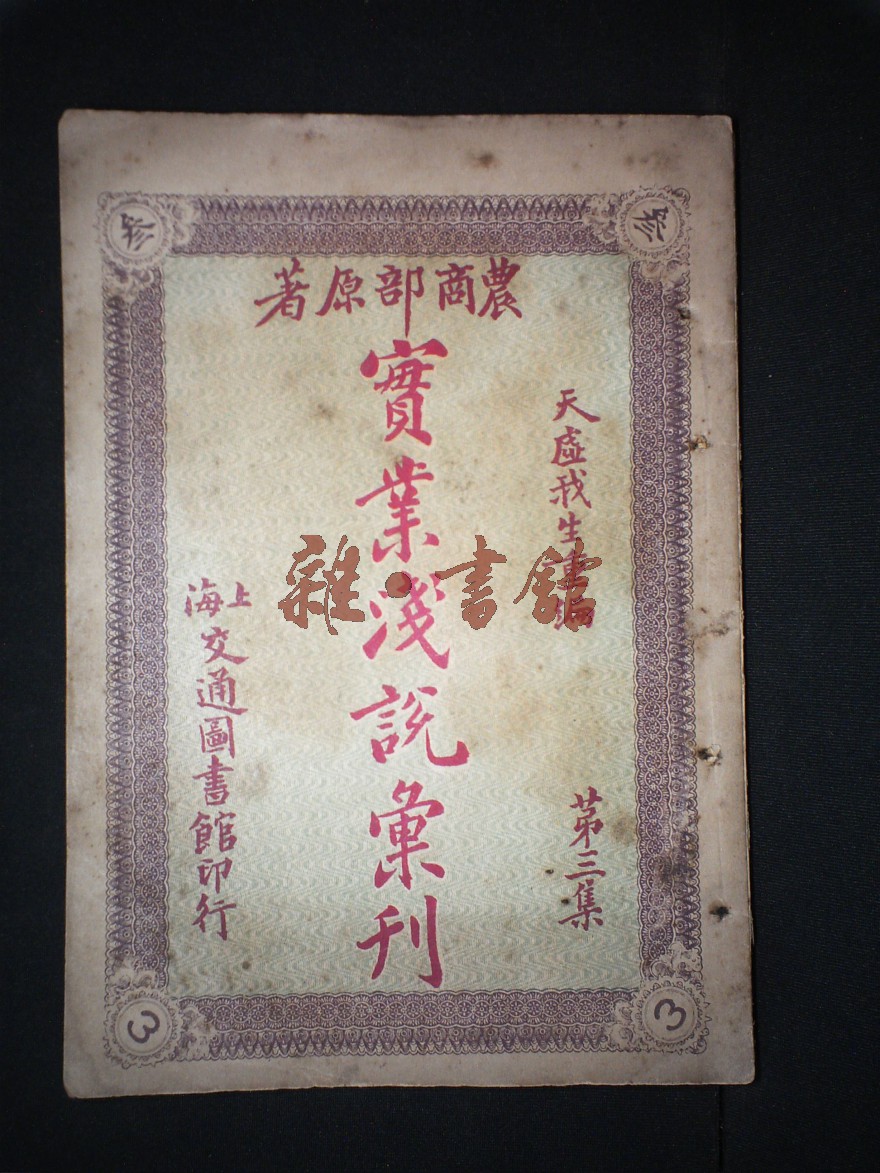 農商部原著
天虛我生重編
第三集
實業淺説彙刊
上海
交通圖書館印行
叄
叄
3
3
雜·書館